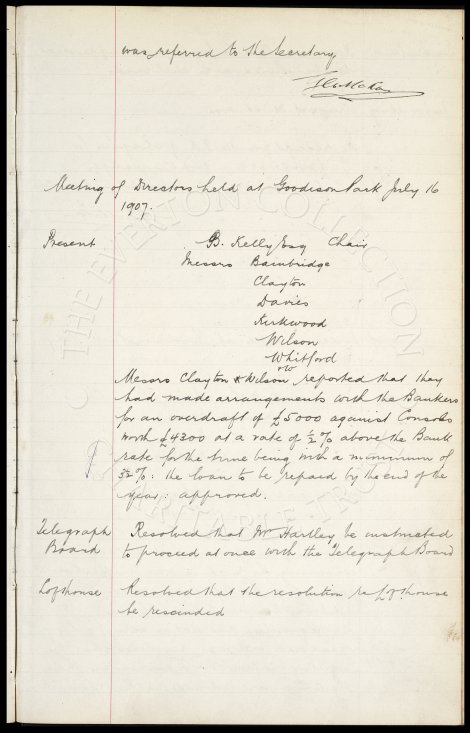 was referred to the Secretary
Meeting of Directors held at Goodison Park July 16
1907.
Present B. Kelly Esq Chair
Messrs Bainbridge
Clayton
Davies
Kirkwood
Wilson
Whitford
Messrs Clayton & Wilson reported that they
had made arrangements with the Bankers
for an overdraft of £5000 against Consols
worth £4300 at a rate of ½% above the Bank
rate for the time being with a minimum of
3½%: the loan to be repaid by the end of the
year: approved.
Telegraph Resolved that Mr Hartley be instructed
Board to proceed at once with the Telegraph Board
Lofthouse Resolved that the resolution re Lofthouse
be rescinded
THE EVERTON COLLECTION
CHARITABLE TRUST